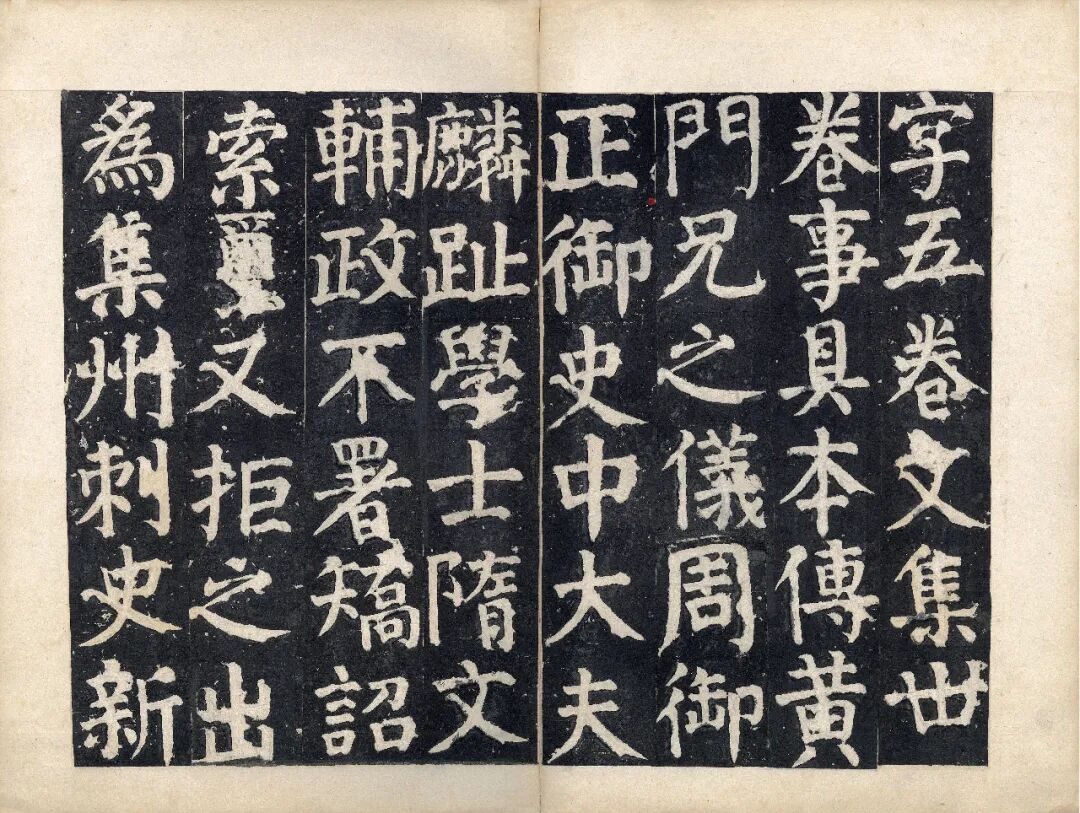 字五卷文集丗
卷事具本傳黃
門兄之儀周御
正御史中大夫
麟趾學士隋文
輔政不署矯詔
索璽又拒之出
爲集州刺史新